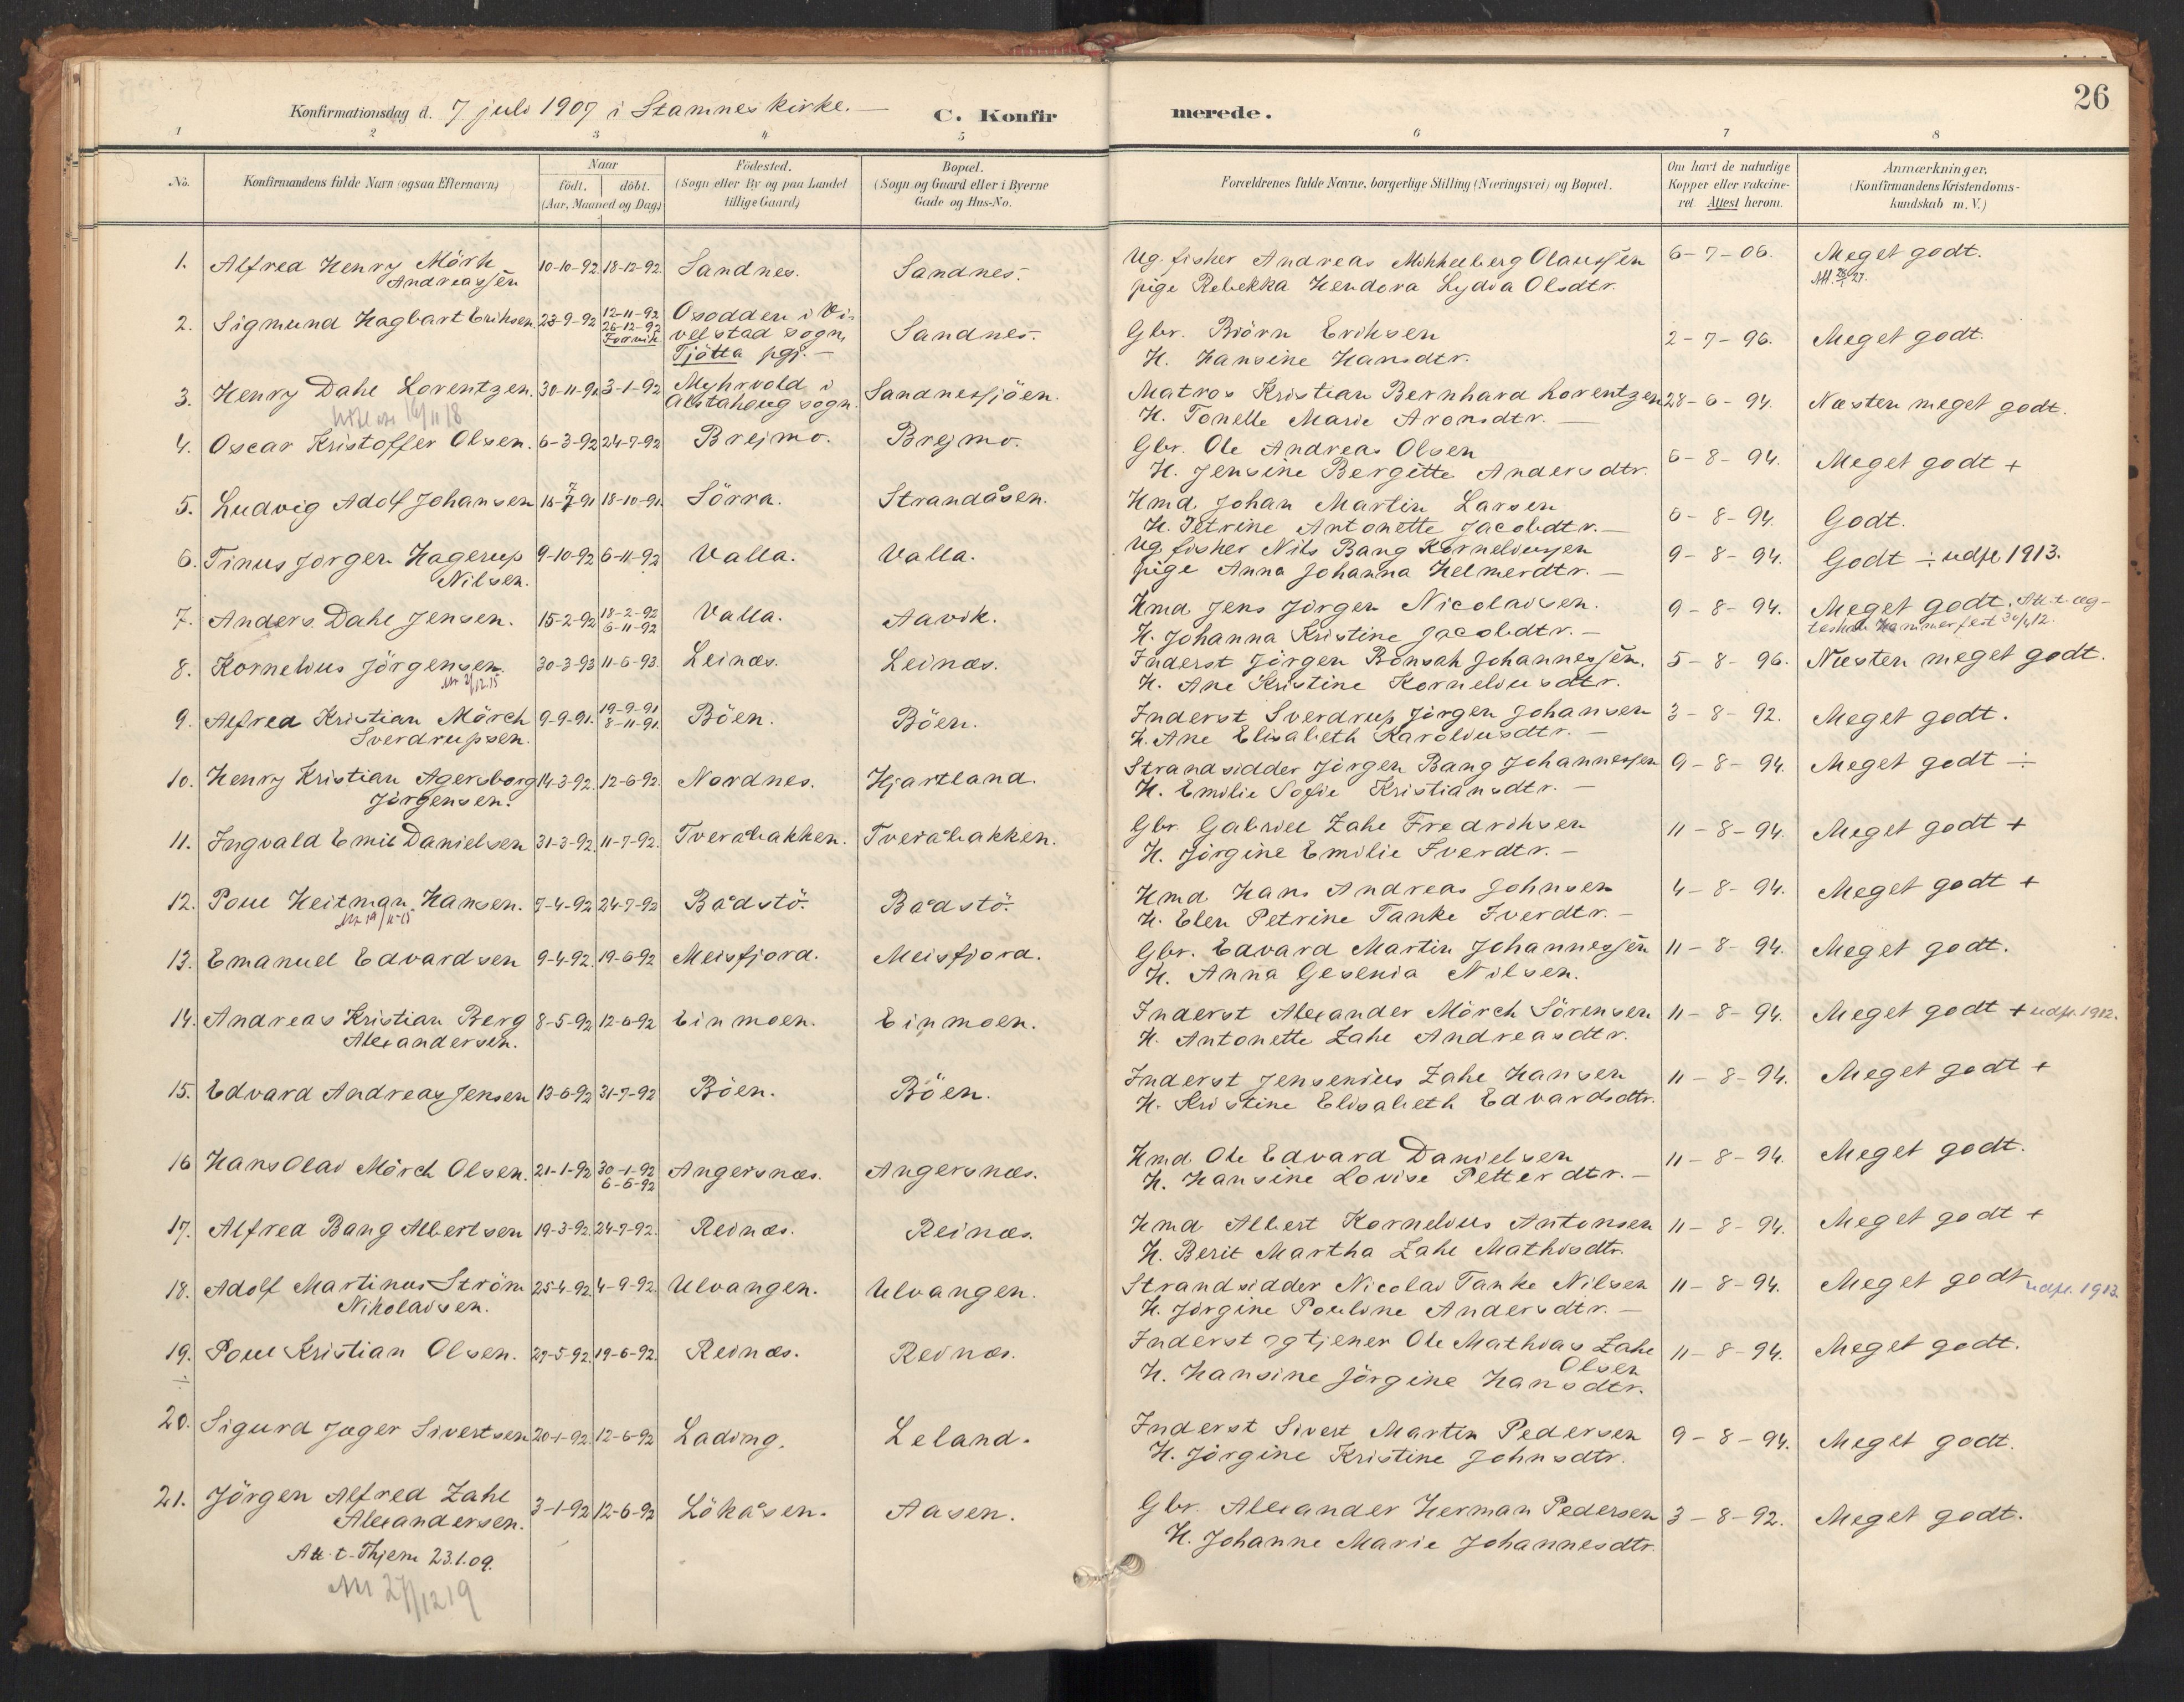 26
Konfirmationsdag d. 7 juli 1907 i Stamnes kirke. — C. Konfirmerede.
1 2 3 4 5 6 7 8
No.
Konfirmandens fulde Navn (ogsaa Efternavn)
Naar
födt. | döbt.
(Aar, Maaned og Dag.)
Födested.
(Sogn eller By og paa Landet
tillige Gaard)
Bopæl.
(Sogn og Gaard eller i Byerne
Gade og Hus-No.
Forældrenes fulde Navne, borgerlige Stilling (Næringsvei) og Bopæl.
Om havt de naturlige
Kopper eller vakcine-
ret Attest herom.
Anmærkninger,
(Konfirmandens Kristendoms-
kundskab m. V.)
1. Alfred Henry Mörk 10-10-92 18-12-92 Sandnes. Sandnes. Ug. fisker Andreas Mikkelberg Olaussen 6-7-06. Meget godt.
Andreassen pige Rebekka Hendora Lydia Olsdtr.
2. Sigmund Hagbart Eriksen 23-9-92 12-11-92 Osodden i Vi- Sandnes. Gbr. Björn Eriksen 2-7-96. Meget godt.
26-12-92 velstad sogn, H. Hansine Hansdtr.
Forvik Tjötta pgj. —
3. Henry Dahl Lorentzen. 30-11-91 3-1-92 Myhrvold i Sandnessjöen. Matros Kristian Bernhard Lorentzen 28-6-94. Næsten meget godt.
16/11 18 Alstahoug sogn. H. Tonelle Marie Aronsdtr. —
4. Oscar Kristoffer Olsen. 6-3-92 24-7-92 Brejmo. Brejmo. Gbr. Ole Andreas Olsen 6-8-94. Meget godt +
H. Jensine Bergitte Andersdtr.
5. Ludvig Adolf Johansen 16-7-91 18-10-91. Sörra. Strandåsen. Hmd Johan Martin Larsen 6-8-94. Godt.
H. Petrine Antonette Jacobdtr. —
6. Tinus Jörgen Hagerup 9-10-92 6-11-92 Valla. Valla. Ug. fisker Nils Bang Korneliussen 9-8-94. Godt ÷ udfl. 1913.
Nilsen. pige Anna Johanna Helmerdtr. —
7. Anders Dahl Jensen. 15-2-92 18-2-92 Valla. Aavik. Hmd Jens Jörgen Nicolaisen. 9-8-94. Meget godt. Att. t. æg-
6-11-92 H. Johanna Kristine Jacobdtr. — teskab Hammerfest
8. Kornelius Jörgensen 30-3-93 11-6-93. Leinæs. Leinæs. Inderst Jörgen Bonsak Johannessen. 5-8-96. Næsten meget godt.
H. Ane Kristine Korneliusdtr.
9. Alfred Kristian Mörch 9-9-91. 19-9-91 Böen. Böen. Inderst Sverdrup Jörgen Johansen 3-8-92. Meget godt.
Sverdrupsen. 8-11-91. H. Ane Elisabeth Karoliusdtr. —
10. Henry Kristian Agersborg 14-3-92. 12-6-92. Nordnes. Hjartland. Strandsidder Jörgen Bang Johannessen 9-8-94. Meget godt ÷
Jörgensen. H. Emilie Sofie Kristiansdtr. —
11. Ingvald Emil Danielsen 31-3-92. 11-7-92. Tveråbakken. Tveråbakken. Gbr. Gabriel Zahl Fredriksen 11-8-94. Meget godt +
H. Jörgine Emilie Iverdtr. —
12. Poul Heitman Hansen. 7-4-92 24-7-92 Bådstö. Bådstö. Hmd Hans Andreas Johnsen 4-8-94. Meget godt +
H. Elen Petrine Tanke Iverdtr. —
13. Emanuel Edvardsen 9-4-92. 19-6-92 Meisfjord. Meisfjord. Gbr. Edvard Martin Johannessen 11-8-94. Meget godt.
H. Anna Gesenia Nilsen.
14. Andreas Kristian Berg 8-5-92 12-6-92 Einmoen. Einmoen. Inderst Alexander Mörch Sörensen 11-8-94. Meget godt + udfl. 1912.
Alexandersen. H. Antonette Zahl Andreasdtr.
15. Edvard Andreas Jensen 13-6-92 31-7-92 Böen. Böen. Inderst Jensenius Zahl Hansen 11-8-94. Meget godt +
H. Kristine Elisabeth Edvardsdtr.
16 Hans Olai Mörch Olsen. 21-1-92 30-1-92 Angersnæs. Angersnæs. Hmd Ole Edvard Danielsen 11-8-94. Meget godt.
6-6-92 H. Hansine Lovise Petterdtr. —
17. Alfred Bang Albertsen 19-3-92. 24-7-92. Reinæs. Reinæs. Hmd Albert Kornelius Antonsen 11-8-94. Meget godt +
H. Berit Martha Zahl Mathisdtr.
18. Adolf Martinus Ström 25-4-92. 4-9-92. Ulvangen. Ulvangen. Strandsidder Nicolai Tanke Nilsen 11-8-94. Meget godt udfl. 1913.
Nikolaisen. H. Jörgine Pouline Andersdtr. —
19. Poul Kristian Olsen. 29-5-92. 19-6-92. Reinæs. Reinæs. Inderst og tjener Ole Mathias Zahl 11-8-94. Meget godt.
÷ Olsen
H. Hansine Jörgine Hansdtr.
20. Sigurd Jæger Sivertsen 20-1-92. 12-6-92 Lading. Leland. Inderst Sivert Martin Pedersen 9-8-94. Meget godt.
H. Jörgine Kristine Johnsdtr.
21. Jörgen Alfred Zahl 3-1-92 12-6-92 Lökåsen. Aasen. Gbr. Alexander Herman Pedersen 3-8-92. Meget godt.
Alexandersen. H. Johanne Marie Johannesdtr.
Att. t. Thjem 23.1.09.
27/12 19